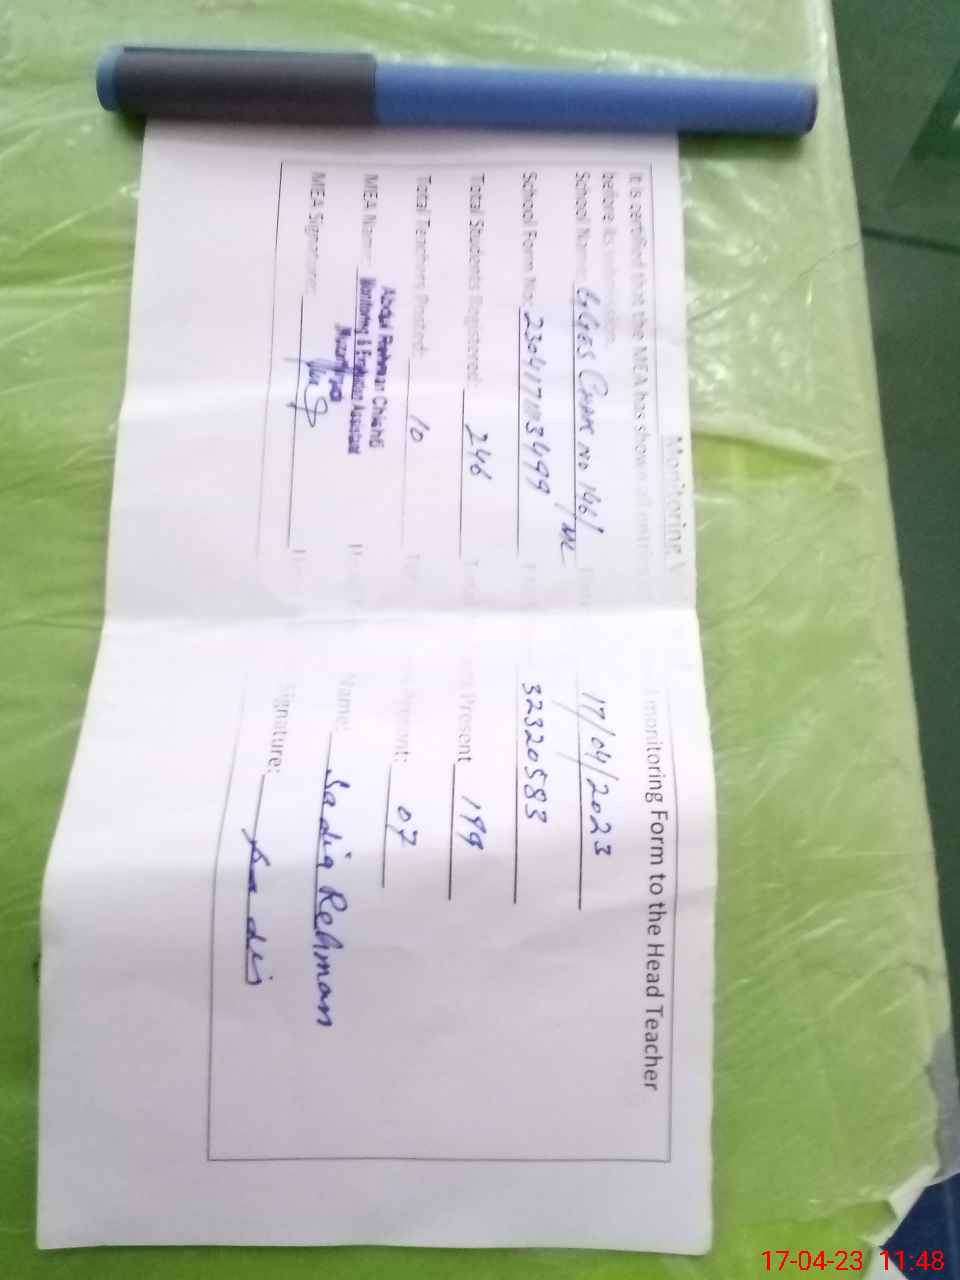 Monitoring
It is certified that the MEA has shown all entries monitoring Form to the Head Teacher
before its submission.
School Name: GGES Chak No 146/ML 17/04/2023
School Form No: 32320583
Total Students Registered: 246 Present 199
Total Teachers Posted: 10 Present: 07
MEA Name: Abdul Rehman Chishti Name: Sadia Rehman
Monitoring & Evaluation Assistant
MEA Signature: Signature: Sadia
17-04-23 11:48